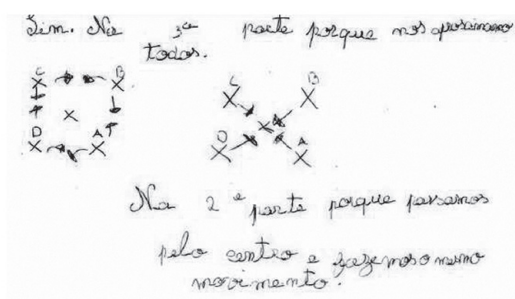 Sim. Na 3ª parte porque nos aprosimamo
todos.
C B
D A
C B
D A
Na 2ª parte porque passamos
pelo centro e fazemos o mesmo
movimento.